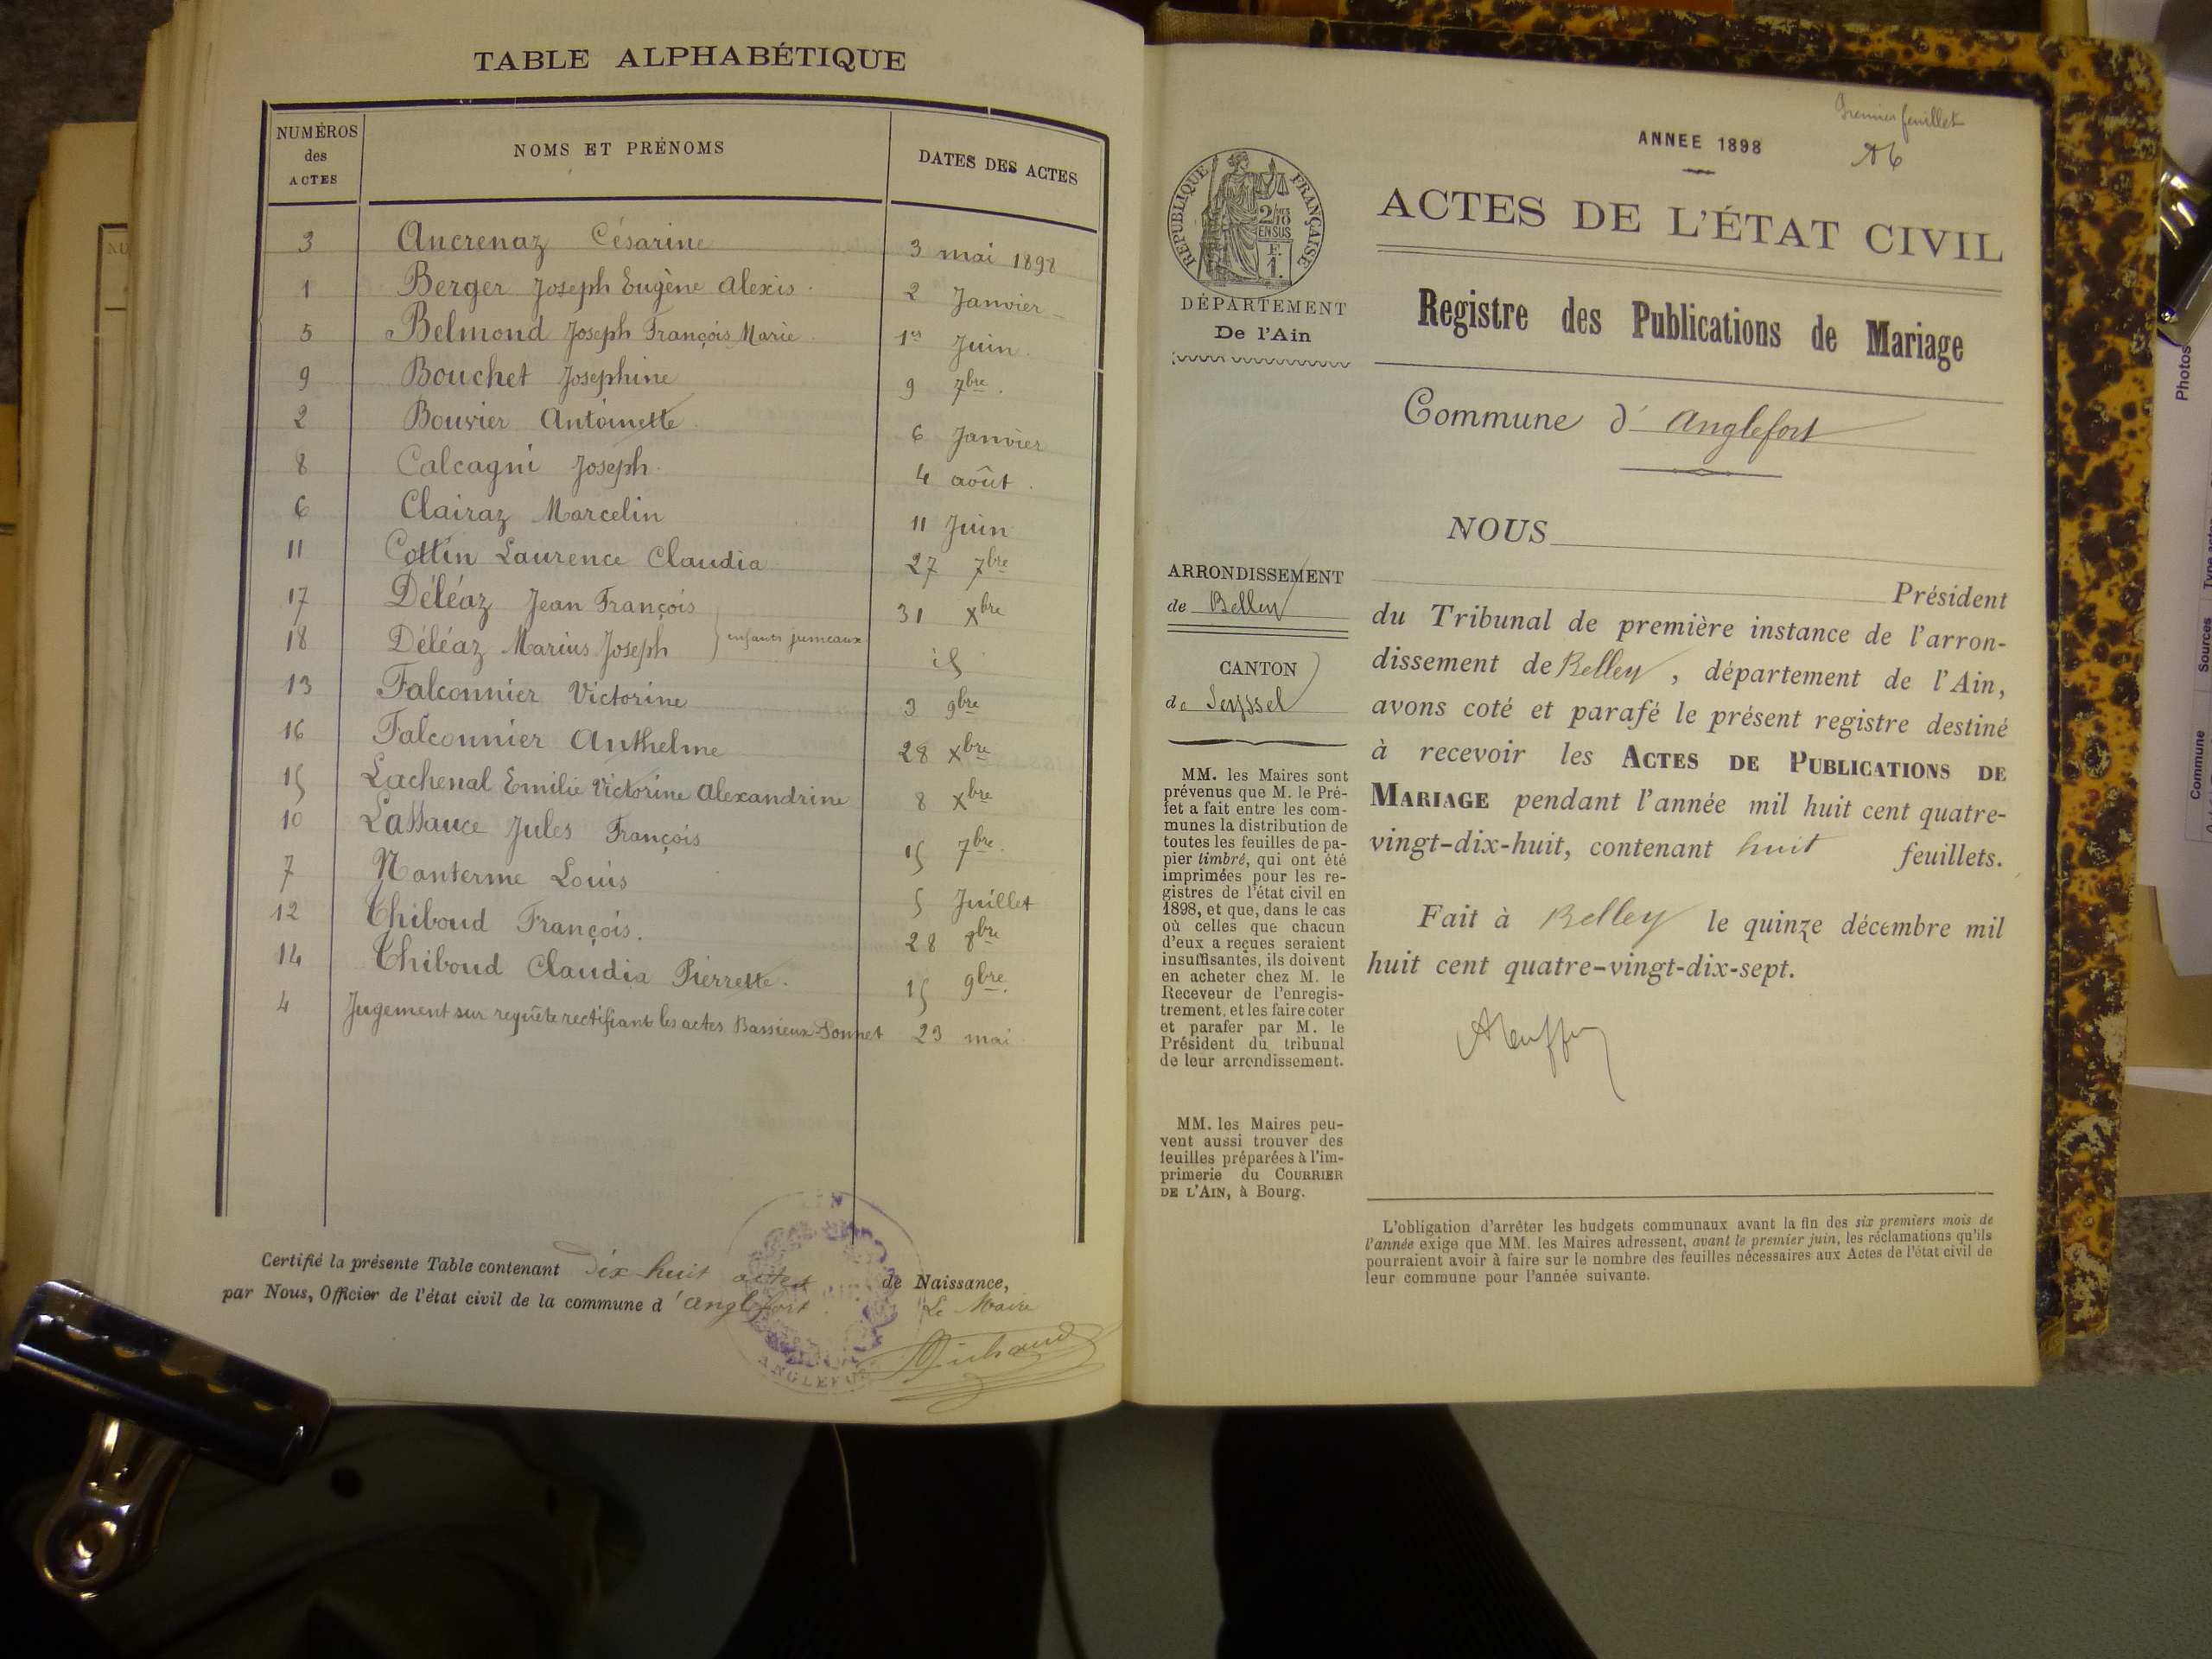 TABLE ALPHABÉTIQUE
NUMÉROS des ACTES NOMS ET PRÉNOMS DATES DES ACTES
3 Ancrenaz Césarine 3 mai 1898
1 Berger Joseph Eugène Alexis 2 Janvier
5 Belmond Joseph François Marie 1er Juin
9 Bouchet Josephine 9 7bre
2 Bouvier Antoinette 6 Janvier
8 Calcagni Joseph 4 août
6 Clairaz Marcelin 11 Juin
11 Cottin Laurence Claudia 27 7bre
17 Déléaz Jean François 31 Xbre
18 Déléaz Marius Joseph } enfants jumeaux id
13 Falconnier Victorine 3 9bre
16 Falconnier Anthelme 28 Xbre
15 Lachenal Emilie Victorine Alexandrine 8 Xbre
10 Lassauce Jules François 15 7bre
7 Nanterme Louis 5 Juillet
12 Thiboud François. 28 8bre
14 Thiboud Claudia Pierrette. 15 9bre
4 Jugement sur requête rectifiant les actes Bassieux-Sonnet 23 mai
Certifié la présente Table contenant Dix huit actes de Naissance,
par Nous, Officier de l'état civil de la commune d'Anglefort.
Le Maire
AIN
ANGLEFORT
Premier feuillet
ANNEE 1898
RÉPUBLIQUE FRANÇAISE
2/10 EN SUS
F.
1.
ACTES DE L'ÉTAT CIVIL
DÉPARTEMENT
De l'Ain
Registre des Publications de Mariage
Commune d'Anglefort
ARRONDISSEMENT
de Belley
CANTON
de Seyssel
MM. les Maires sont
prévenus que M. le Pré-
fet a fait entre les com-
munes la distribution de
toutes les feuilles de pa-
pier timbré, qui ont été
imprimées pour les re-
gistres de l'état civil en
1898, et que, dans le cas
où celles que chacun
d'eux a reçues seraient
insuffisantes, ils doivent
en acheter chez M. le
Receveur de l'enregis-
trement, et les faire coter
et parafer par M. le
Président du tribunal
de leur arrondissement.
MM. les Maires peu-
vent aussi trouver des
feuilles préparées à l'im-
primerie du COURRIER
DE L'AIN, à Bourg.
NOUS
Président
du Tribunal de première instance de l'arron-
dissement de Belley, département de l'Ain,
avons coté et parafé le présent registre destiné
à recevoir les ACTES DE PUBLICATIONS DE
MARIAGE pendant l'année mil huit cent quatre-
vingt-dix-huit, contenant huit feuillets.
Fait à Belley le quinze décembre mil
huit cent quatre-vingt-dix-sept.
L'obligation d'arrêter les budgets communaux avant la fin des six premiers mois de
l'année exige que MM. les Maires adressent, avant le premier juin, les réclamations qu'ils
pourraient avoir à faire sur le nombre des feuilles nécessaires aux Actes de l'état civil de
leur commune pour l'année suivante.
Photos
Sources
Commune